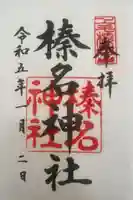 奉拝
榛名神社
榛名
神社
令和五年一月二日